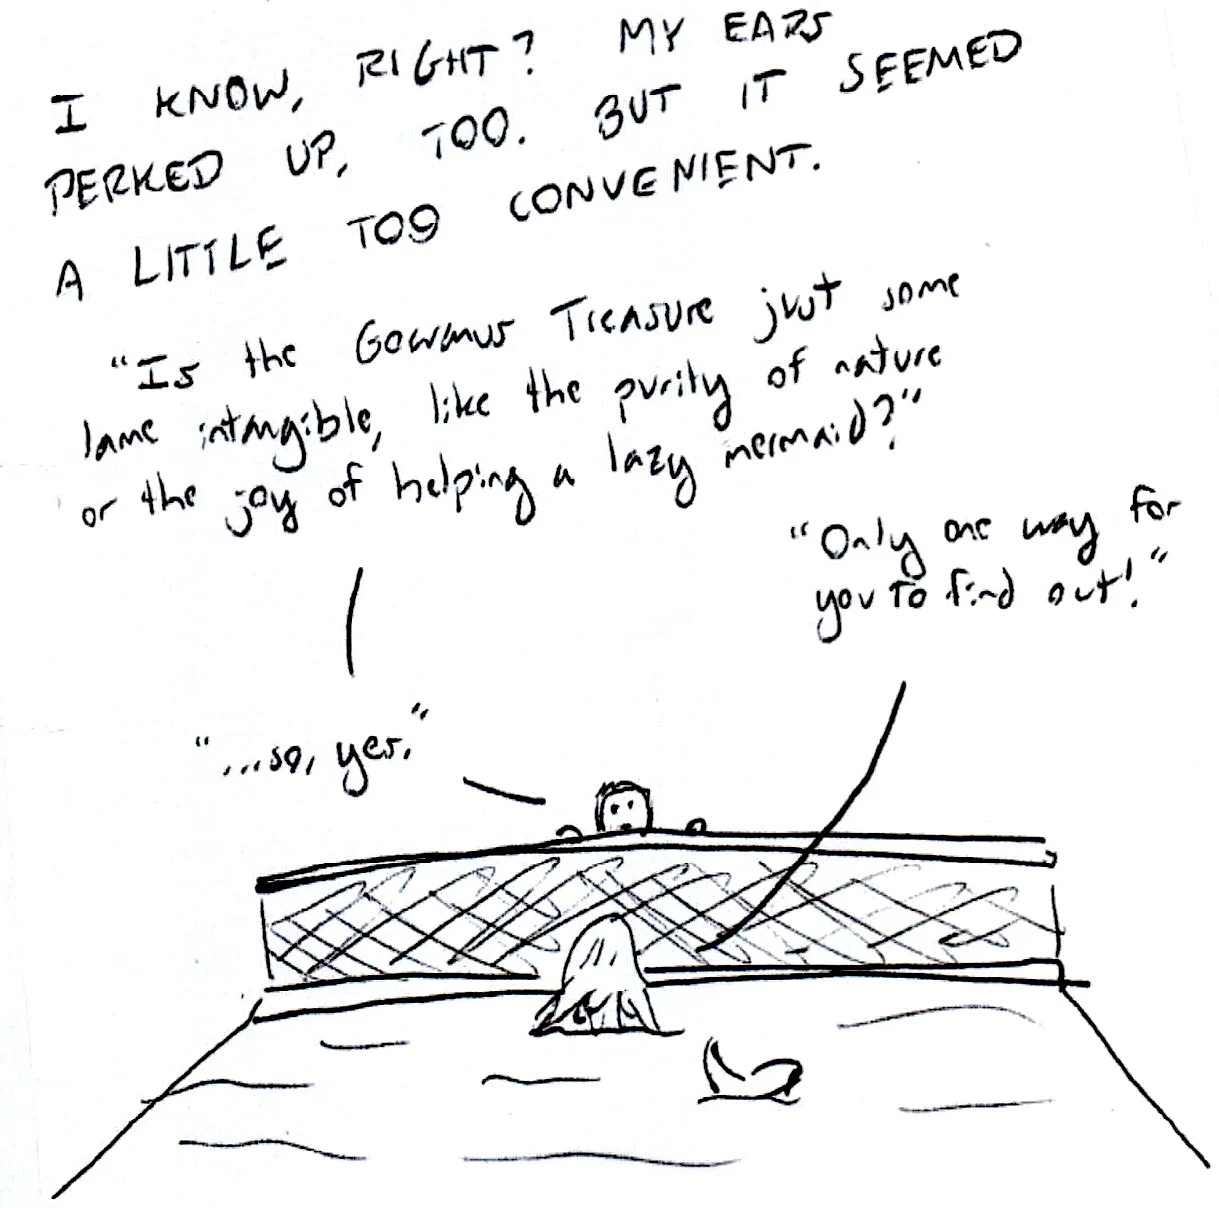 I KNOW, RIGHT? MY EARS
PERKED UP, TOO. BUT IT SEEMED
A LITTLE TOO CONVENIENT.
"Is the Gowanus Treasure just some
lame intangible, like the purity of nature
or the joy of helping a lazy mermaid?"
"Only one way for
you to find out!"
"...so, yes."